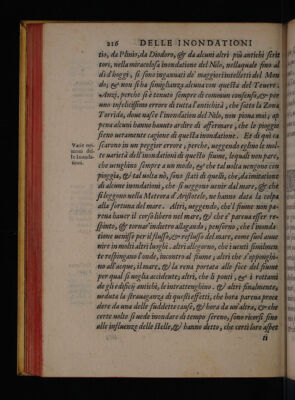 216 DELLE INONDATIONI
tio, da Plinio, da Diodoro, & da alcuni altri più antichi scrit
tori, nella miracolosa inondatione del Nilo, nella quale fino al
dì d'hoggi, si sono ingannati de' maggiori intelletti del Mon
do; & non si ha simiglianza alcuna con questa del Tevere.
Anzi, perche si è tenuto sempre di commun consenso, & per
uno infelicissimo errore di tutta l'antichità, che sotto la Zona
Torrida, dove nasce l'inondation del Nilo, non piova mai; ap
pena alcuni hanno havuto ardire di affermare, che le pioggie
sieno veramente cagione di questa inondatione. Et di qui ca
scarono in un peggior errore; perche, veggendo eglino le mol
te varietà dell'inondationi di questo fiume, le quali non pare,
che venghino sempre a un modo, & che tal volta vengono con
pioggia, & tal volta nò, sono stati di quelli, che, da imitatione
di alcune inondationi, che si veggono venir dal mare, & che
si leggono nella Meteora d'Aristotele, ne hanno data la colpa
alla fortuna del mare. Altri, veggendo, che'l fiume non pa-
reva haver il corso libero nel mare, & che e' pareva esser re-
spinto, & tornar'indietro allagando, pensorno, che l'inonda-
tione venisse per il flusso, & reflusso del mare, come suol avve
nire in molti altri luoghi. altri allegorno, che i venti similmen
te respingono l'onde, incontro al fiume; altri che s'opponghi-
no all'acque, il mare, & la rena portata alle foce del fiume
per qual si voglia accidente; altri, che i ponti, & i rottami
de gli edificij antichi, le intrattenghino. & altri finalmente,
veduta la stravaganza di questi effetti, che hora pareva proce
dere da una delle suddette cause, & hora da un'altra, & che
certe volte si vede inondare di tempo sereno, sono ricorsi sino
alle influenze delle stelle, & hanno detto, che certi loro aspet
ti
Varie opi-
nioni del-
le Inonda-
tioni.